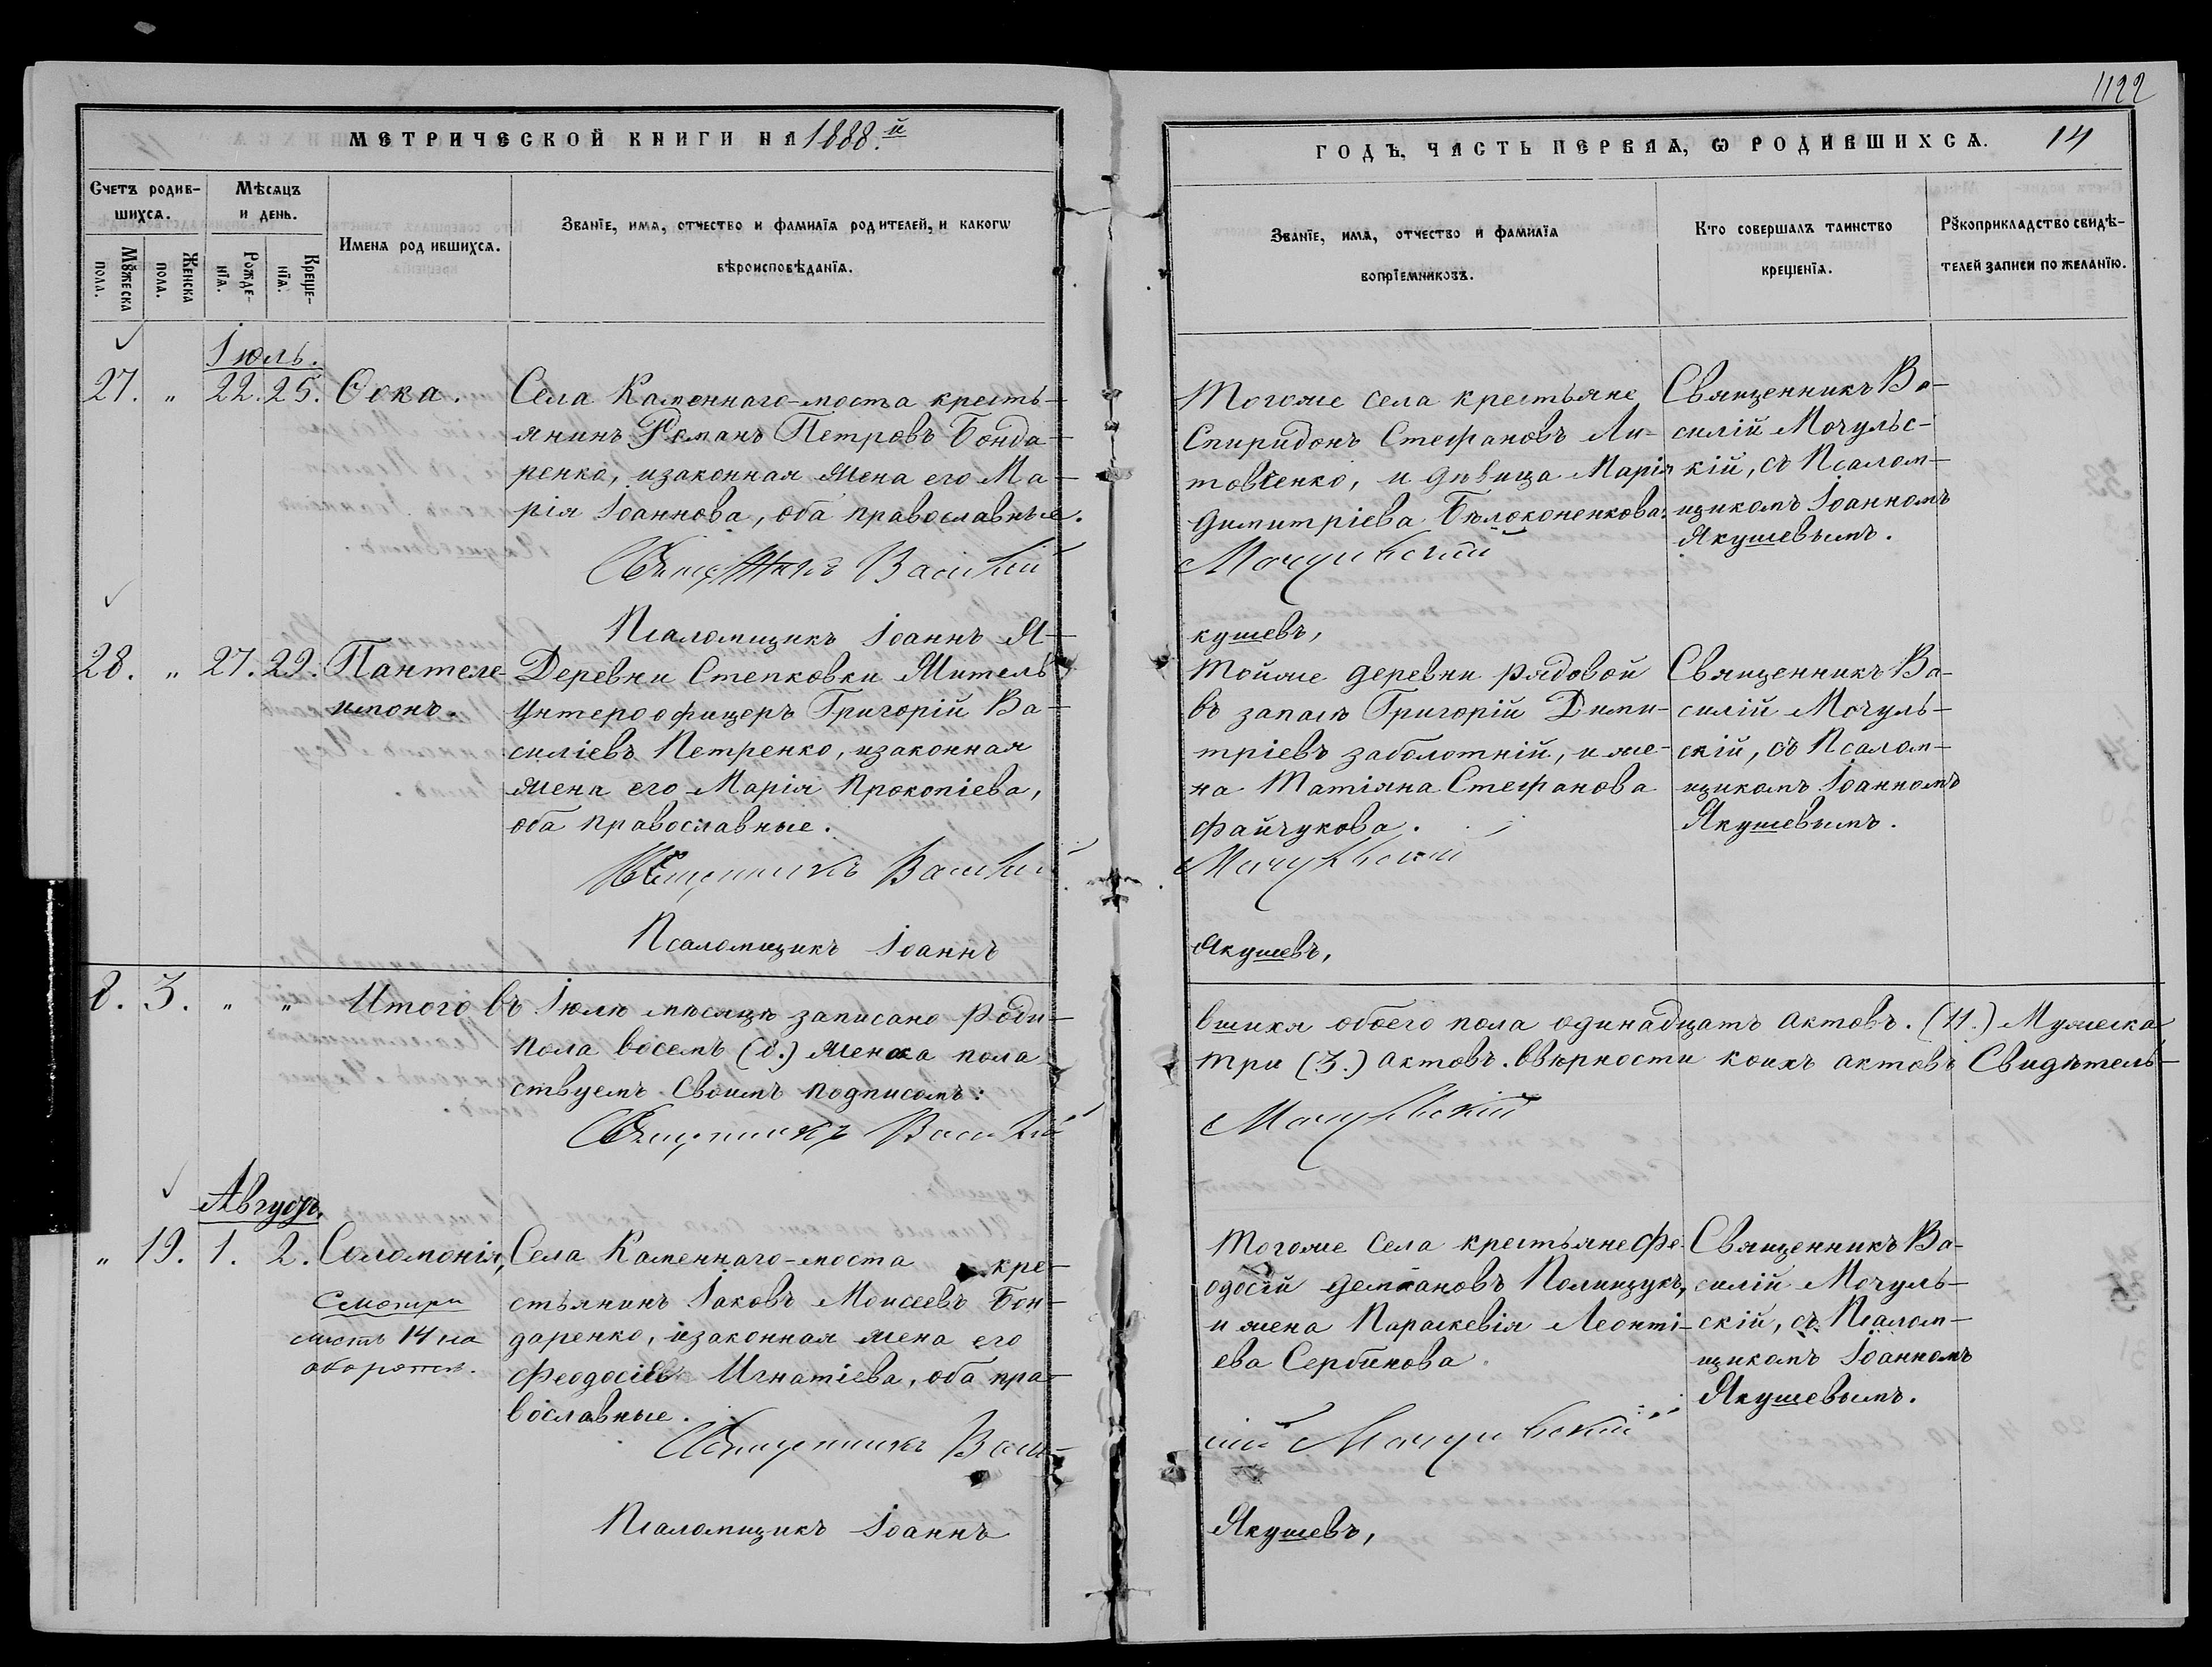 1122
МЕТРИЧЕСКОЙ КНИГИ НА 1888.й
ГОДЪ, ЧАСТЬ ПЕРВАѦ, Ѡ РОДИВШИХСѦ. 14
Счетъ родив-
шихсѧ.
Мѣсѧцъ
и день.
Мꙋжеска
пола.
Женска
пола.
Рожде-
нїѧ.
Креще-
нїѧ.
Имена родившихсѧ.
Званїе, имѧ, отчество и фамилїѧ родителей, и какогѡ
вѣроисповѣданїѧ.
Званїе, имѧ, отчество и фамилїѧ
воспрїемниковъ.
Кто совершалъ таинство
крещенїѧ.
Рꙋкоприкладство свидѣ-
телей записи по желанїю.
Іюль.
27. " 22. 25. Ѳока.
Села Каменнаго-моста кресть-
янинъ Романъ Петровъ Бонда-
ренко, изаконная жена его Ма-
рія Іоаннова, оба православные.
Священникъ Василій
Псаломщикъ Іоаннъ Я-
Тогоже села крестьяне
Спиридонъ Стефановъ Ли-
товченко, и дѣвица Марія
Димитріева Бѣлоконенкова.
Мочульскій
кушевъ,
Священникъ Ва-
силій Мочульс-
кій, съ Псалом-
щикомъ Іоанномъ
Якушевымъ.
28. " 27. 29. Пантеле-
имонъ.
Деревни Степковки Житель
Унтероофицеръ Григорій Ва-
силіевъ Петренко, изаконная
жена его Марія Прокопіева,
оба православные.
Священникъ Василій
Псаломщикъ Іоаннъ
Тойже деревни рядовой
въ запасѣ Григорій Дими-
тріевъ заболотній, и же-
на Татіяна Стефанова
Файчукова.
Мочульскій
Якушевъ,
Священникъ Ва-
силій Мочуль-
скій, съ Псалом-
щикомъ Іоанномъ
Якушевымъ.
8. 3. " " Итого въ Іюлѣ мѣсяцѣ записано роди-
вшихя обоего пола одинадцать актовъ. (11.) Мужеска
пола восемь (8.) женска пола
три (3.) актовъ. ввѣрности коихъ актовъ Свидѣтель-
ствуемъ Своимъ подписомъ:
Священникъ Василій
Мочульскій
Августъ.
" 19. 1. 2. Соломонія,
Смотри
листъ 14 на
оборотѣ.
Села Каменнаго-моста кре-
стьянинъ Іаковъ Моисеевъ Бон-
даренко, изаконная жена его
Феодосія Игнатіева, оба пра-
вославные.
Священникъ Васи-
Псаломщикъ Іоаннъ
Тогоже села крестьяне Фе-
одосій Демяановъ Полищукъ,
и жена Параскевія Леонті-
ева Сербинова.
лій Мочульскій
Якушевъ,
Священникъ Ва-
силій Мочуль-
скій, съ Псалом-
щикомъ Іоанномъ
Якушевымъ.